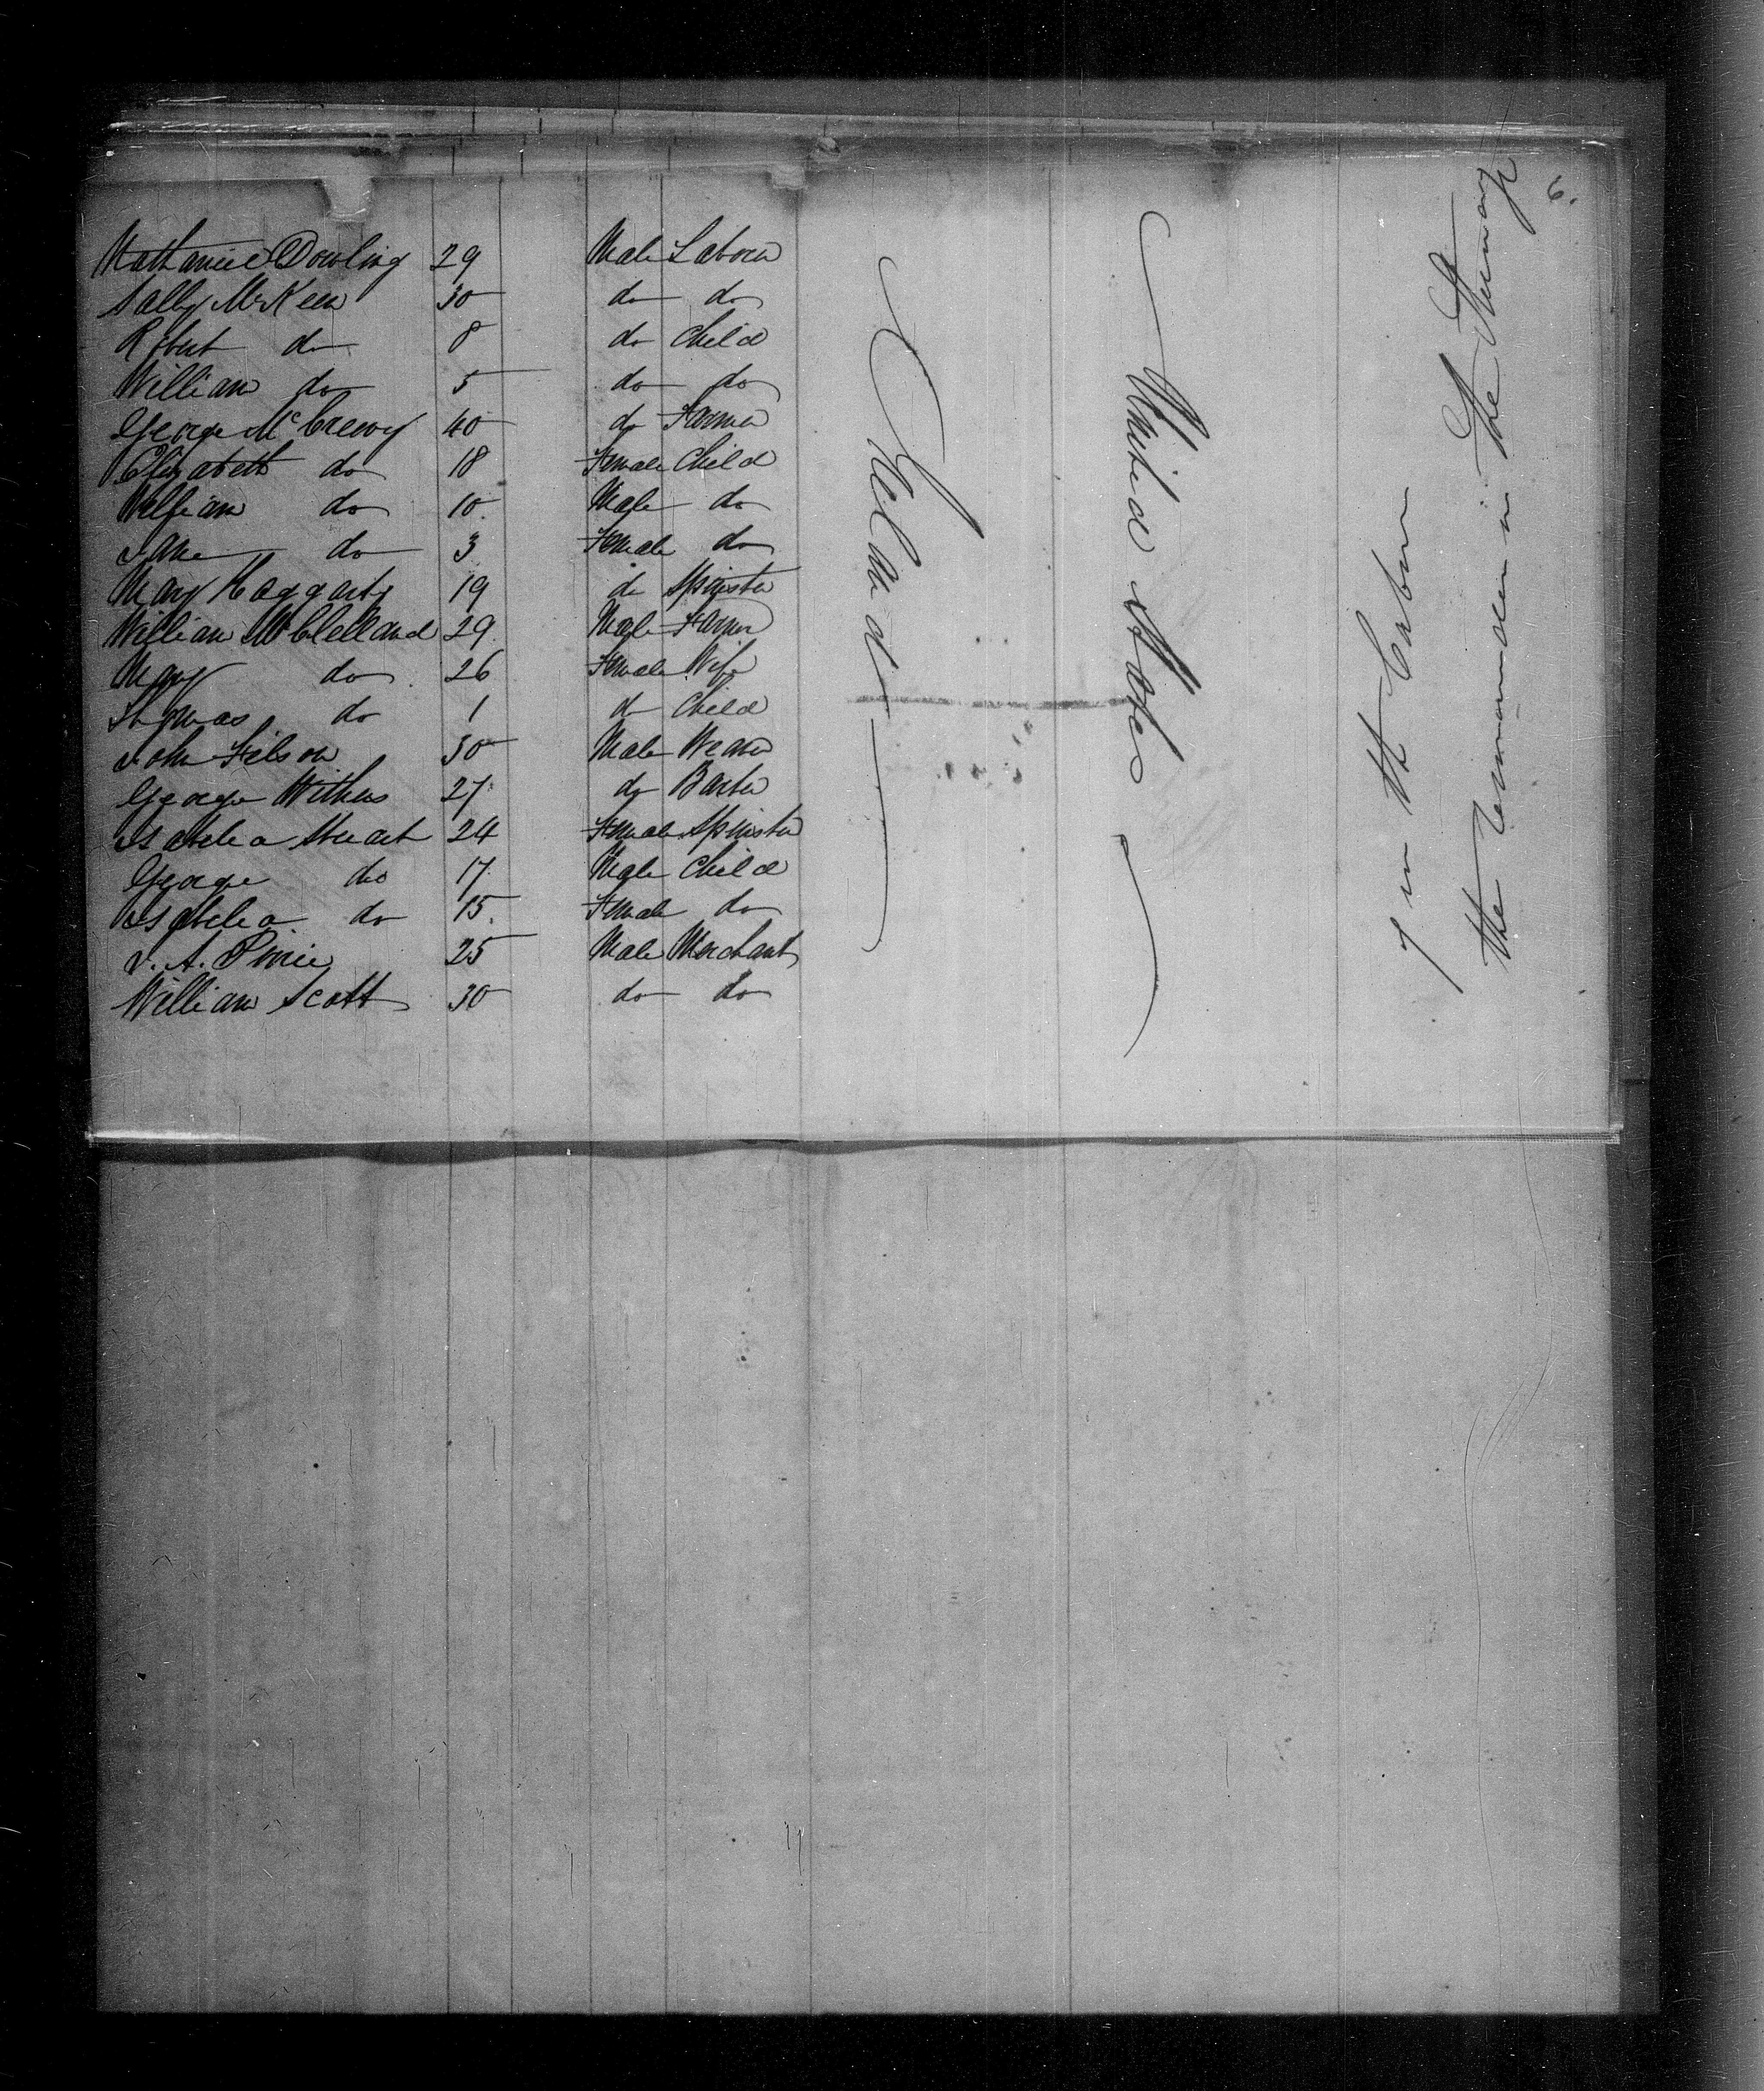 6.
Nathaniel Dowling 29 Male Laborer
Sally McKeen 30 do do
Robert do 8 do Child
William do 5 do do
George McCreevy 40 do Farmer
Elizabeth do 18 Female Child
William do 10 Male do
Jane do 3 Female do
Mary Haggarty 19 do Spinster
William McClelland 29 Male Farmer
Mary do 26 Female Wife
Thomas do 1 do Child
John Filson 30 Male Weaver
George Withers 27 do Barber
Isabella Stuart 24 Female Spinster
George do 17 Male Child
Isabella do 15 Female do
J. A. 25 Male Merchant
William Scott 30 do do
Ireland
United States
7 in the Cabin
the remainder in the Steerage